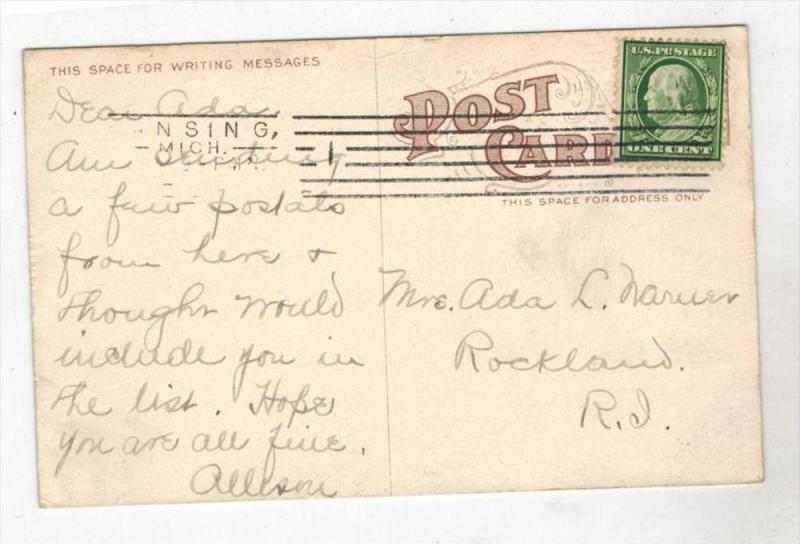 THIS SPACE FOR WRITING MESSAGES
Dear Ada,
NSING,
MICH.
Am sending
a few postals
from here &
thought would
include you in
the list. Hope
you are all fine.
Allison
POST
CARD
U.S. POSTAGE
ONE CENT
THIS SPACE FOR ADDRESS ONLY
Mrs. Ada L. Warner
Rockland.
R.I.